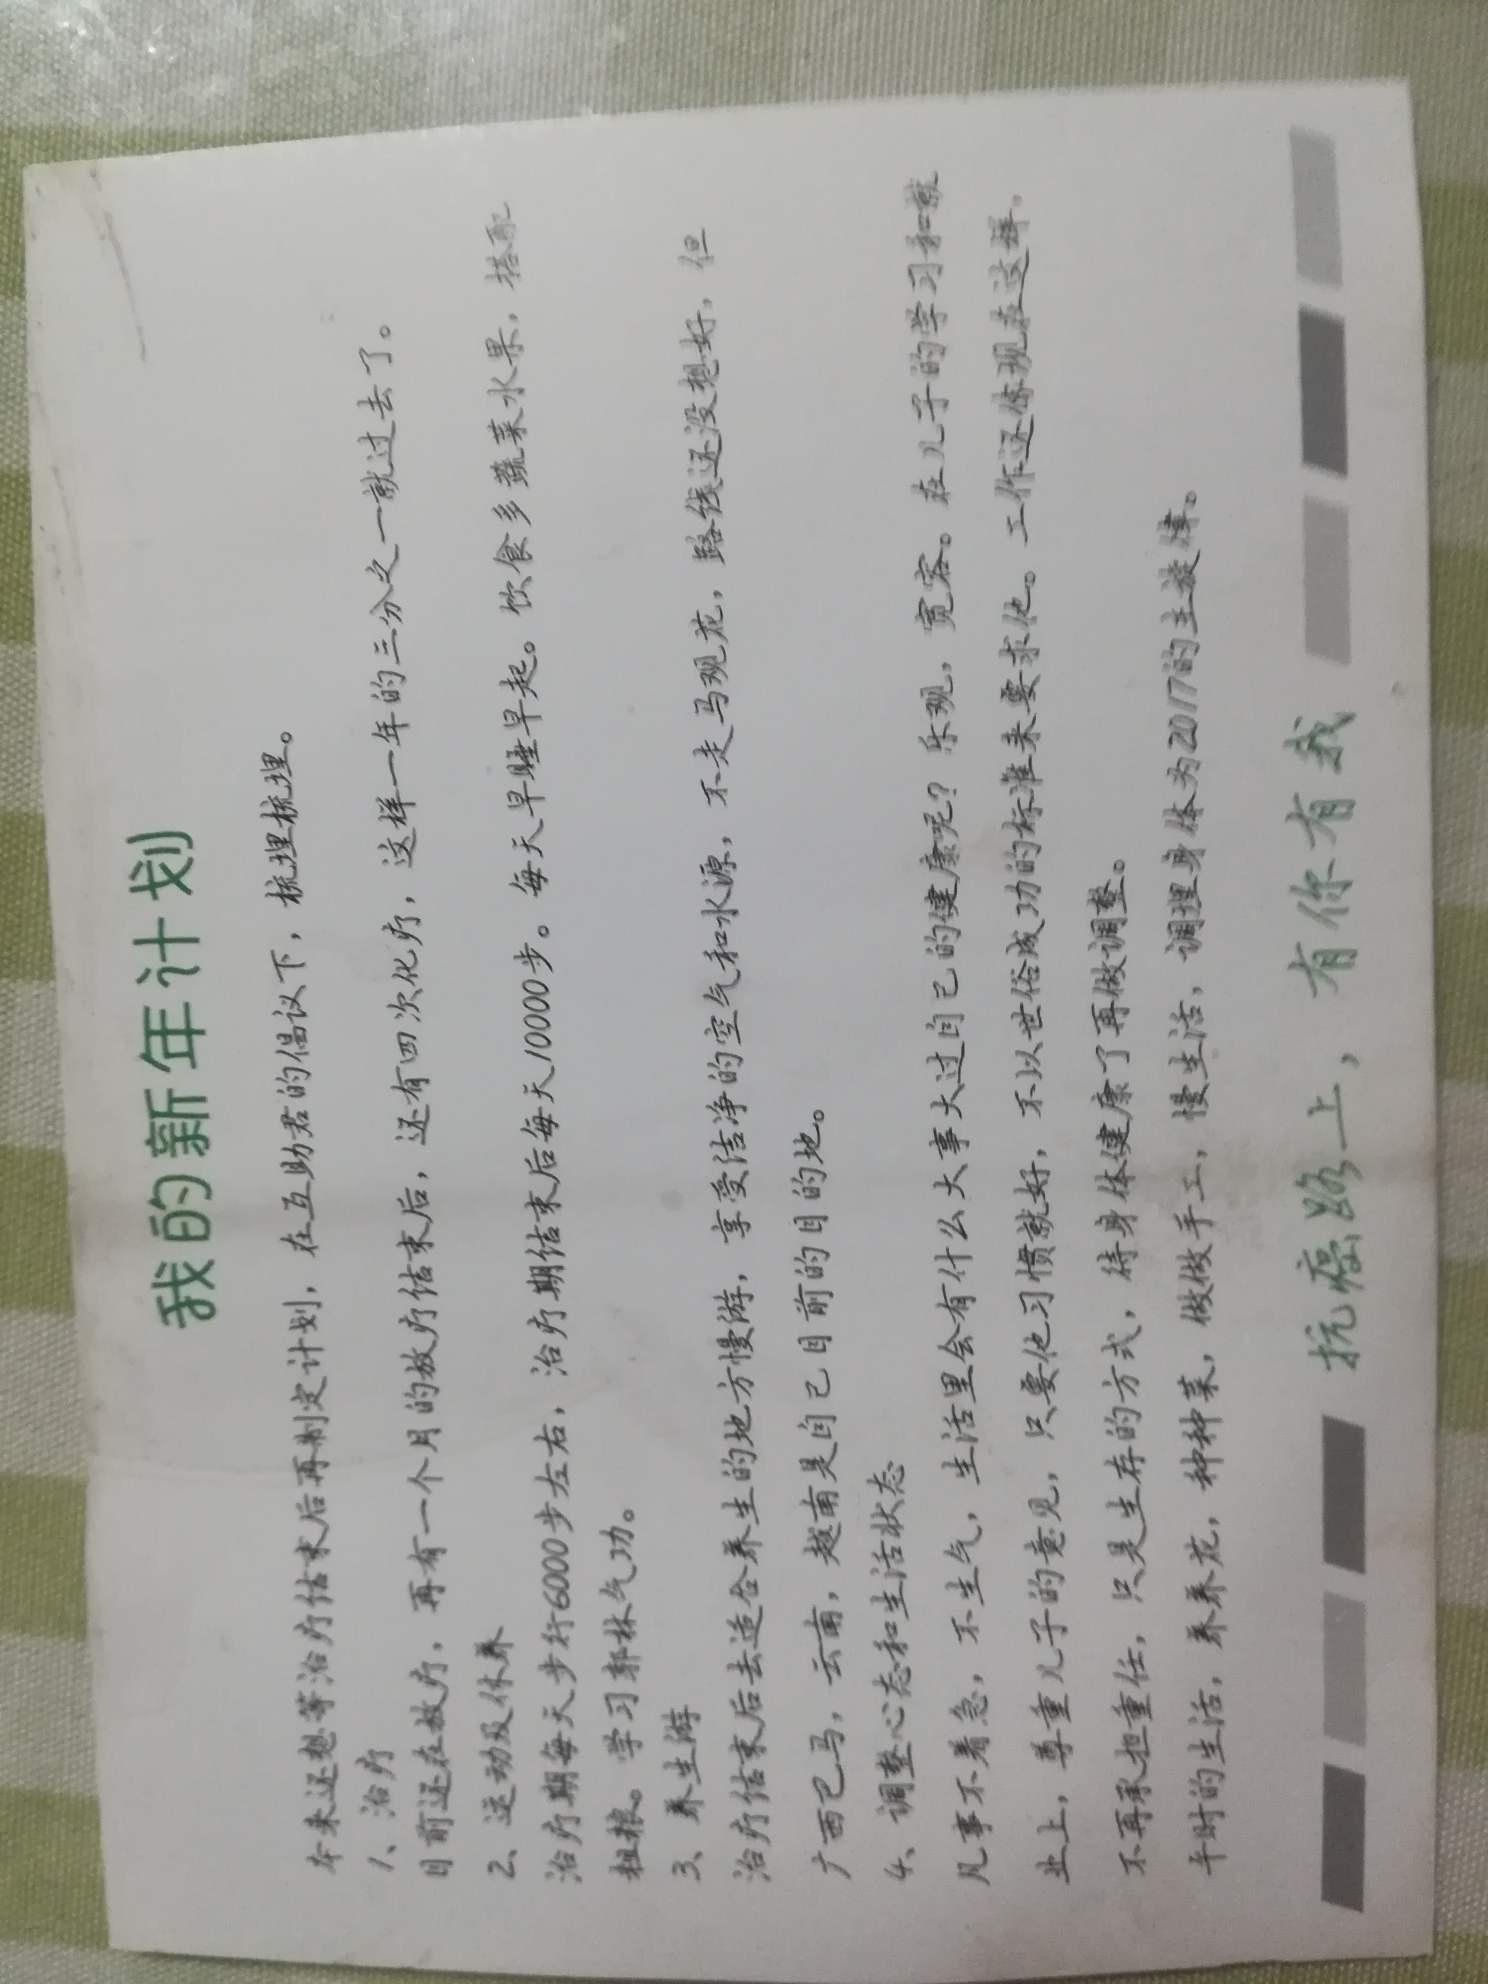 我的新年计划
本来还想等治疗结束后再制定计划，在互助君的倡议下，梳理梳理。
1、治疗
目前还在放疗，再有一个月的放疗结束后，还有四次化疗，这样一年的三分之一就过去了。
2、运动及休养
治疗期每天步行6000步左右，治疗期结束后每天10000步。每天早睡早起。饮食多蔬菜水果，搭配
粗粮。学习郭林气功。
3、养生游
治疗结束后去适合养生的地方慢游，享受洁净的空气和水源，不走马观花，路线还没想好，但
广西巴马，云南，越南是自己目前的目的地。
4、调整心态和生活状态
凡事不着急，不生气，生活里会有什么大事大过自己的健康呢？乐观，宽容。在儿子的学习和就
业上，尊重儿子的意见，只要他习惯就好，不以世俗成功的标准来要求他。工作还像现在这样，
不再承担重任，只是生存的方式，待身体健康了再做调整。
平时的生活，养养花，种种菜，做做手工，慢生活，调理身体为2017的主旋律。
抗癌路上，有你有我